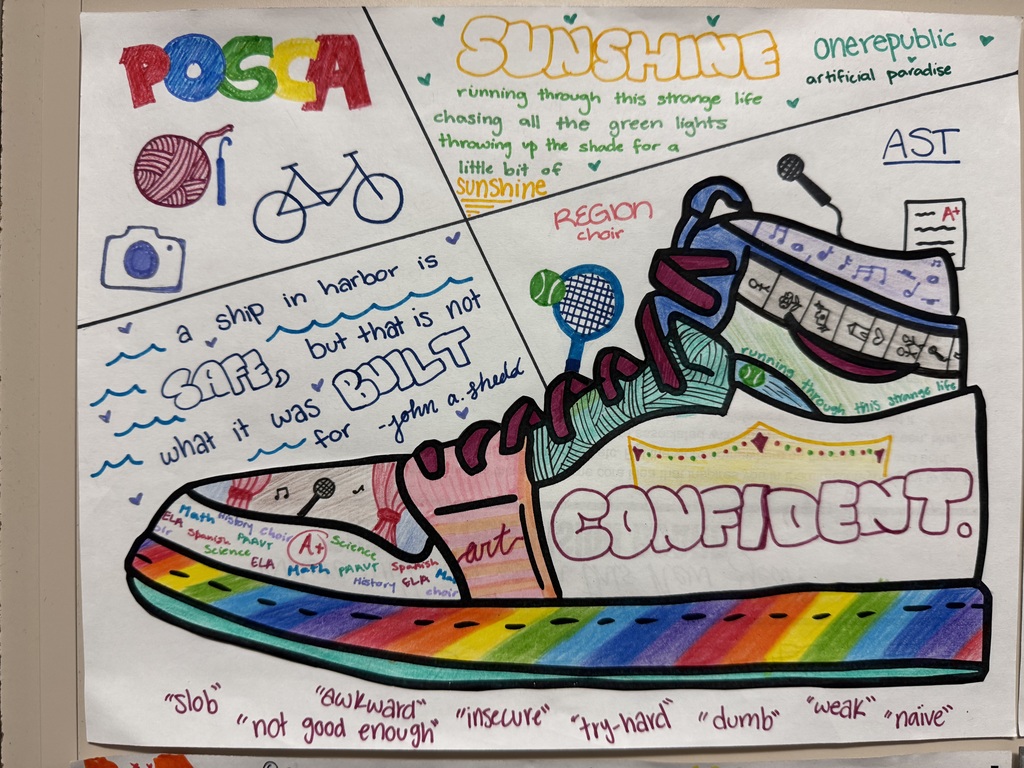 POSCA
SUNSHINE
onerepublic
artificial paradise
running through this strange life
chasing all the green lights
throwing up the shade for a
little bit of
sunshine
AST
A+
REGION
choir
a ship in harbor is
SAFE, but that is not
what it was BUILT
for -john a. shedd
running through this strange life
CONFIDENT.
art
Math History choir
ELA Spanish PAAVT A+ Science
Science
ELA Math PAAVT Spanish
History ELA Ma
choir
"slob" "awkward" "insecure" "try-hard" "dumb" "weak" "naive"
"not good enough"